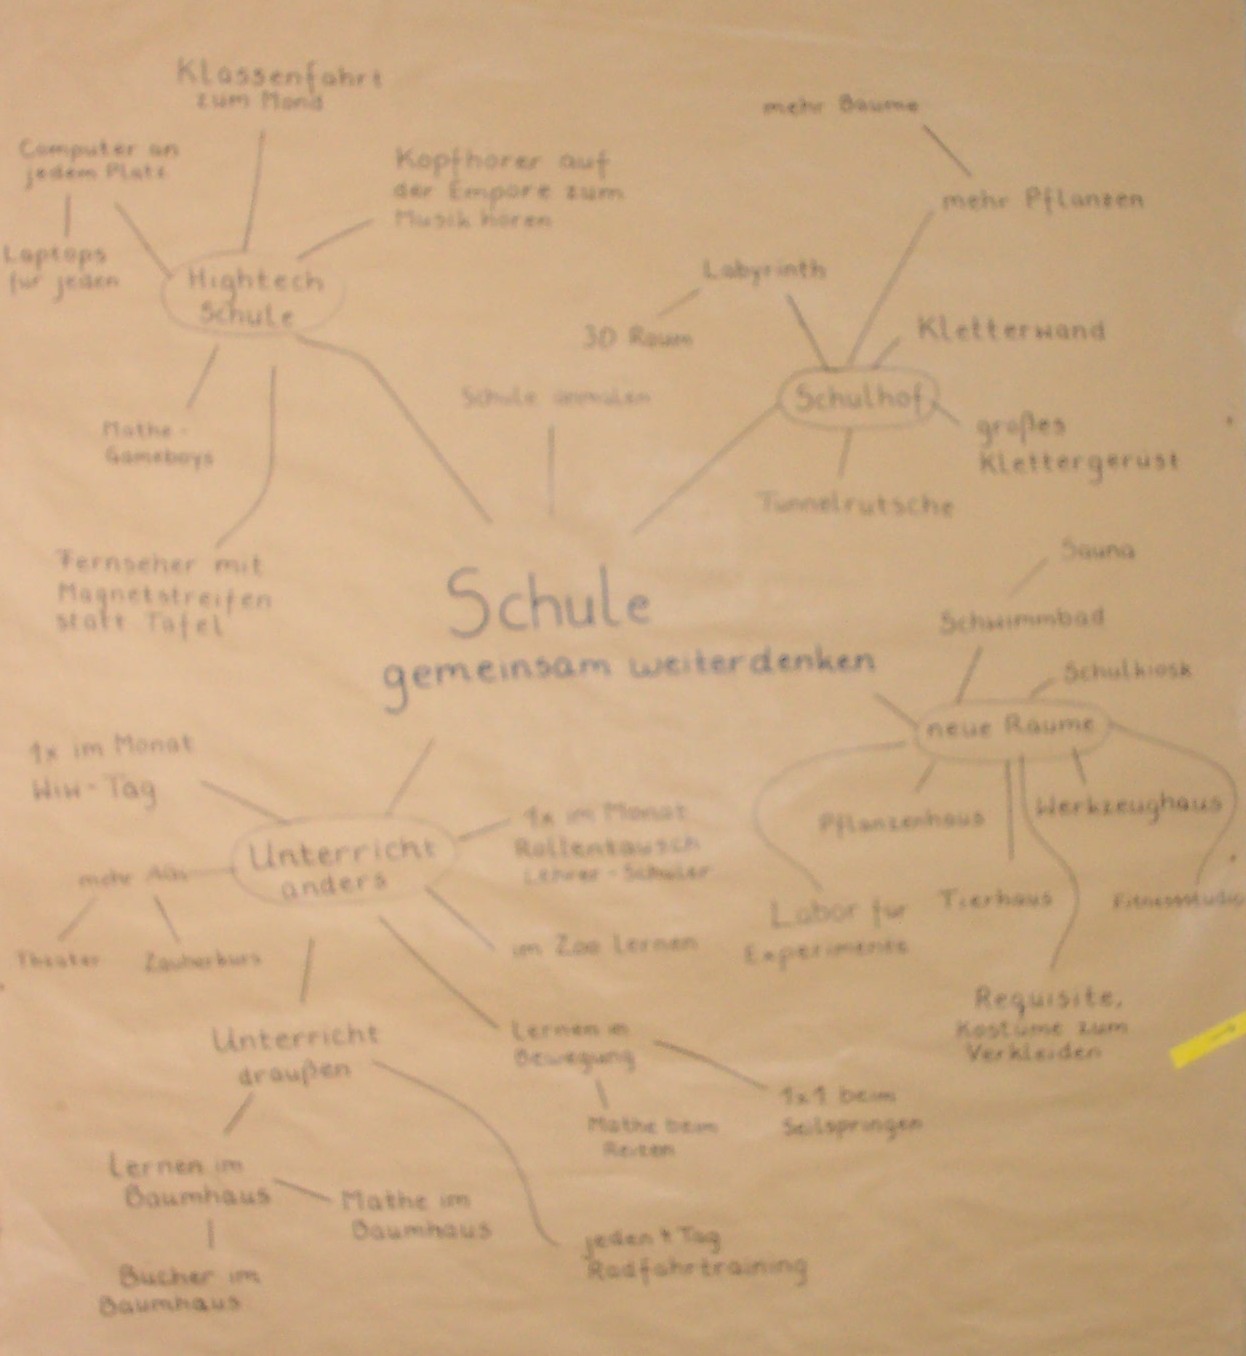 Klassenfahrt
zum Mond
Computer an
jedem Platz
Laptops
für jeden
Kopfhörer auf
der Empore zum
Musik hören
Hightech
Schule
Mathe-
Gameboys
Fernseher mit
Magnetstreifen
statt Tafel
Schule anmalen
mehr Bäume
mehr Pflanzen
Labyrinth
3D Raum
Kletterwand
Schulhof
großes
Klettergerüst
Tunnelrutsche
Schule
gemeinsam weiterdenken
Sauna
Schwimmbad
Schulkiosk
neue Räume
Pflanzenhaus
Werkzeughaus
Labor für
Experimente
Tierhaus
Fitnessstudio
Requisite,
Kostüme zum
Verkleiden
1x im Monat
WiW-Tag
Unterricht
anders
1x im Monat
Rollentausch
Lehrer-Schüler
mehr
Theater
im Zoo lernen
Unterricht
draußen
Lernen in
Bewegung
Mathe beim
Reiten
1x1 beim
Seilspringen
Lernen im
Baumhaus
Mathe im
Baumhaus
Bücher im
Baumhaus
jeden Tag
Radfahrtraining